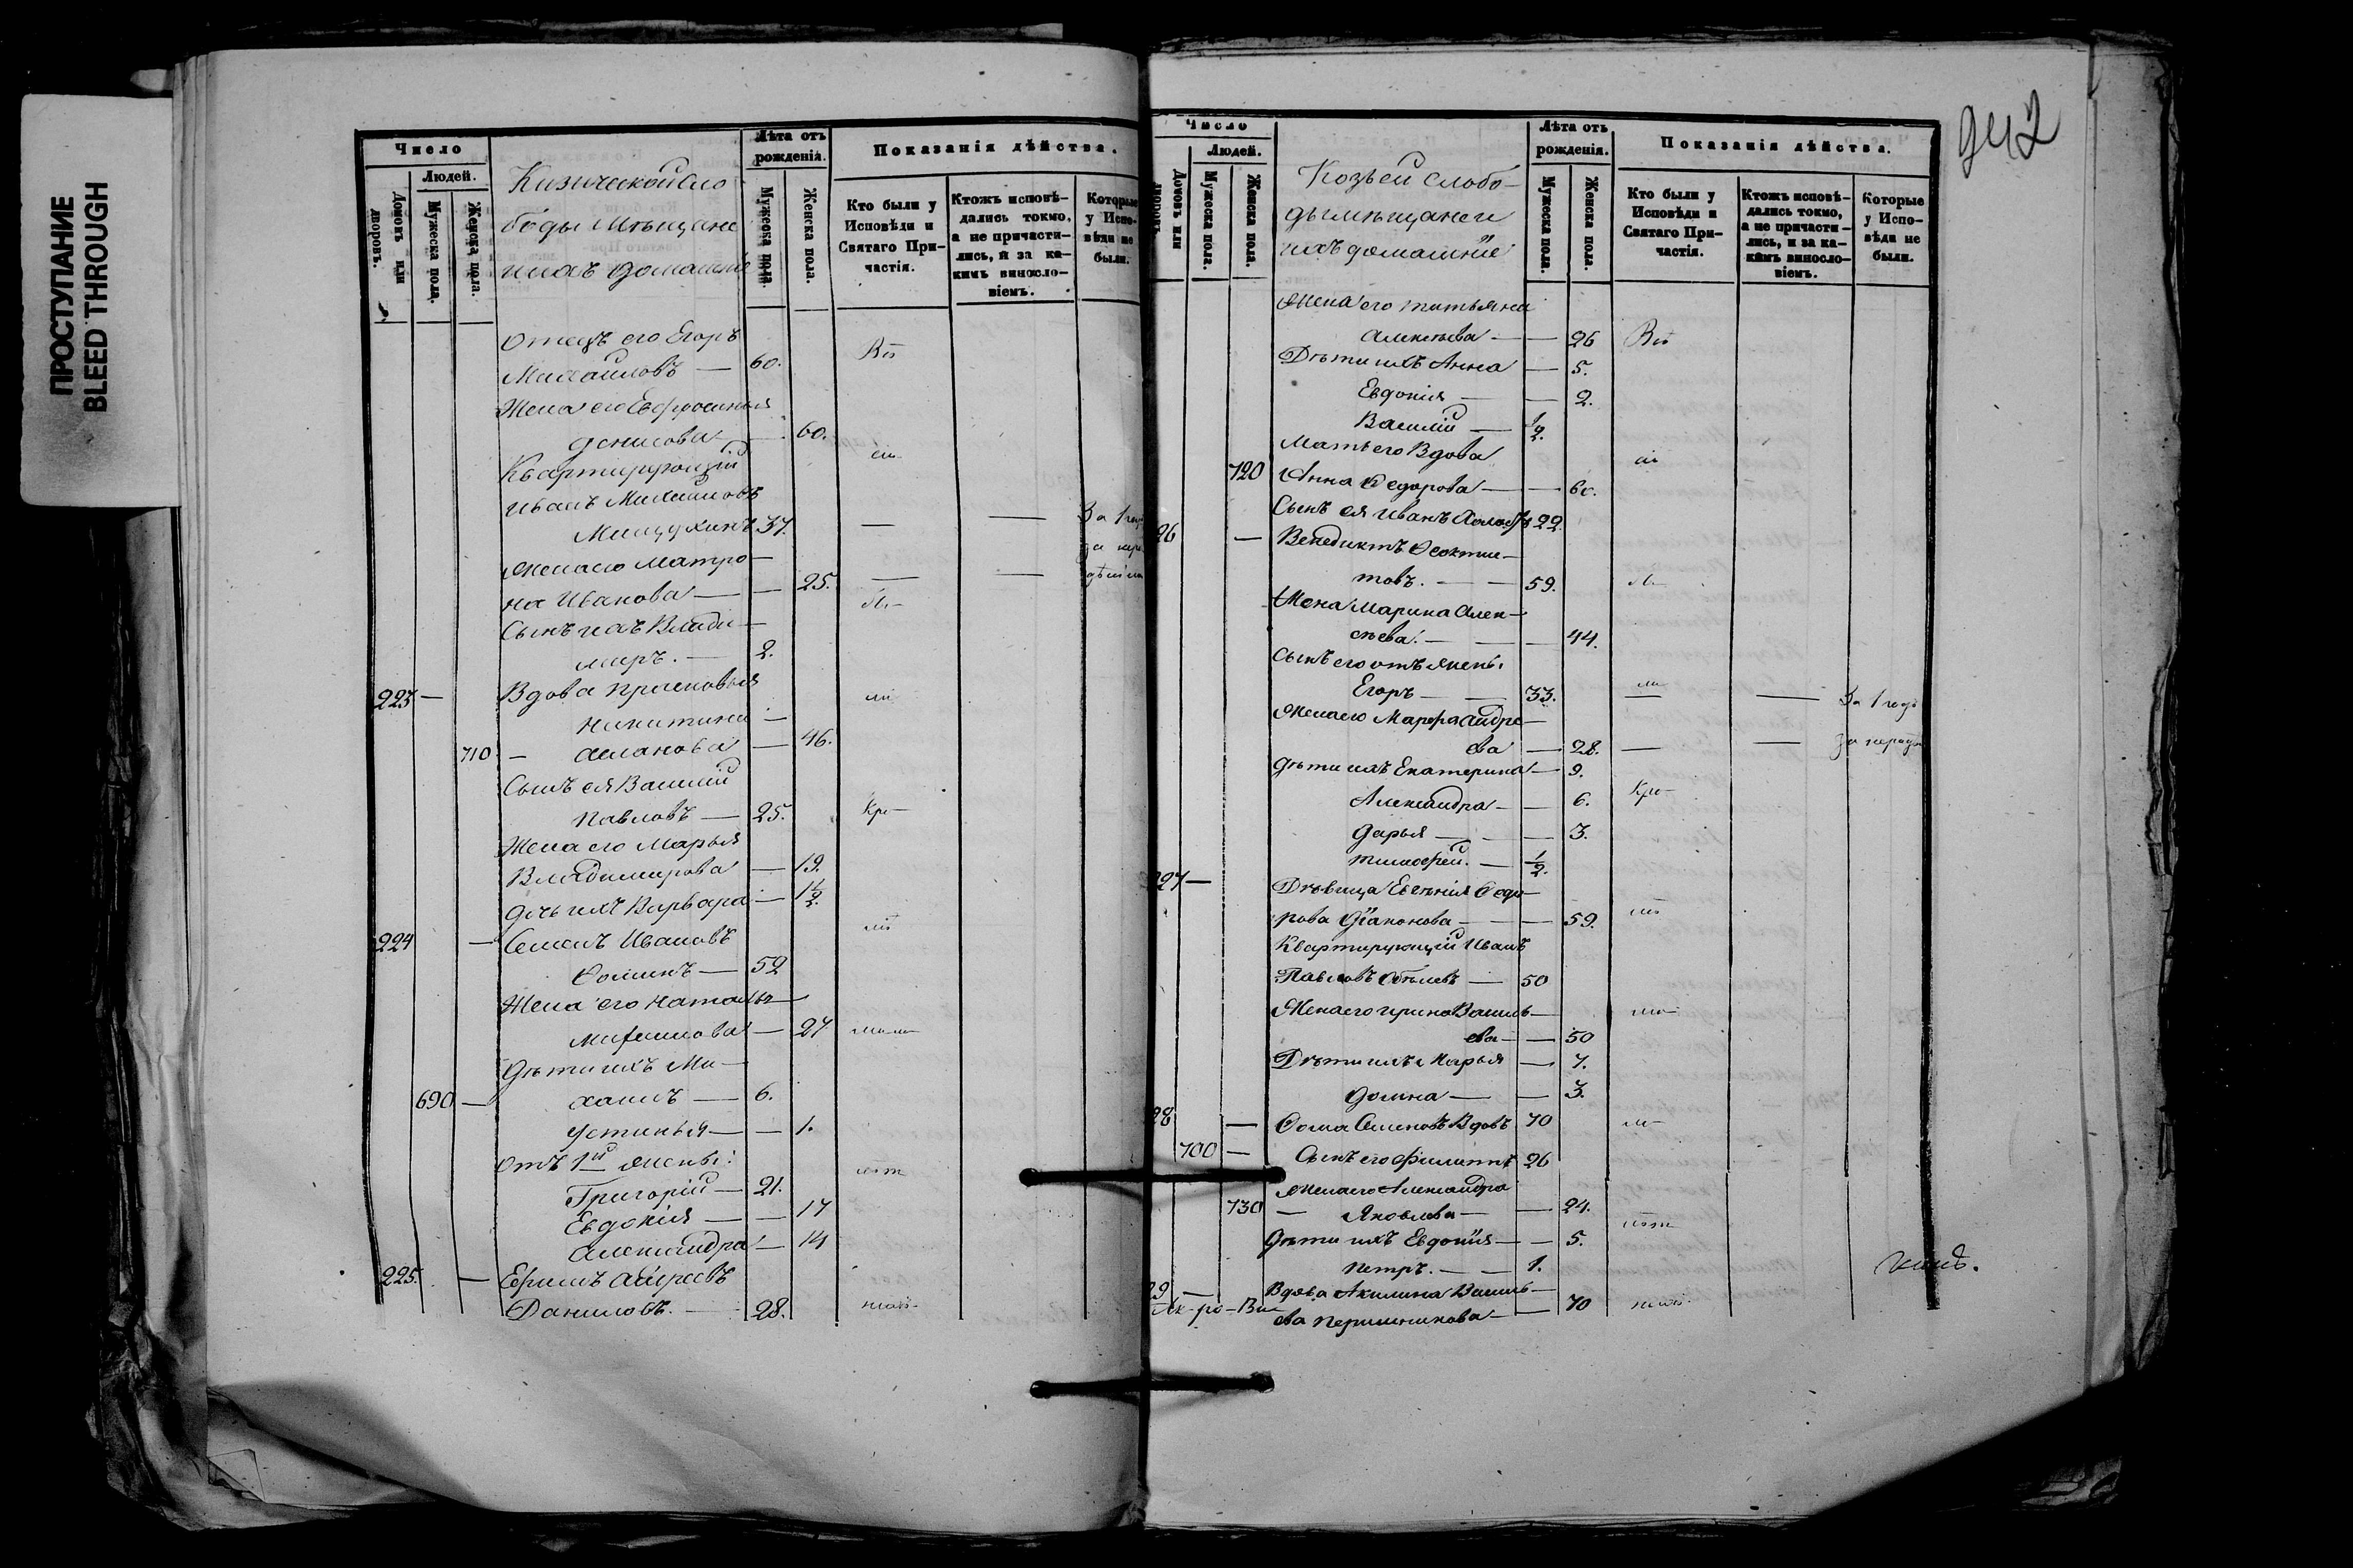 ПРОСТУПАНИЕ
BLEED THROUGH
Число
Людей.
Домовъ или дворовъ.
Мужеска пола.
Женска пола.
Кизической Сло
боды Мѣщане
и ихъ домашніе
Лѣта отъ
рожденія.
Мужеска пола.
Женска пола.
Показанія дѣйства.
Кто были у
Исповѣди и
Святаго При-
частія.
Ктожъ исповѣ-
дались токмо,
а не причасти-
лись, и за ка-
кимъ винисло-
віемъ.
Которые
у Испо-
вѣди не
были.
Отецъ его Егоръ
Михайловъ — 60.
Жена его Евфросинья
Денисова — 60.
Квартирующій
Иванъ Михайловъ
37. — —
За 1 годъ
Жена его Матро-
на Иванова — — 25. — —
Сынъ ихъ Влади-
миръ. — 2.
223 — Вдова Прасковья
Никитина —
710 — — 46.
Сынъ ея Василій
Павловъ — 25.
Жена его Марья
Владимирова — 19.
Дочь ихъ Варвара — 1 1/2.
224 — Семенъ Ивановъ
Ѳоминъ — 52
Жена его Наталья
— 27
Дѣти ихъ Ми-
690 — хаилъ — 6.
Устинья — — 1.
Отъ 1й жены:
Григорій — 21.
Евдокія — — 17
Александра — 14
225. — Ефимъ Андреевъ
Даниловъ. — 28.
942
Число
Людей.
Домовъ или дворовъ.
Мужеска пола.
Женска пола.
Козьей Слобо-
ды мѣщане и
ихъ домашніе
Лѣта отъ
рожденія.
Мужеска пола.
Женска пола.
Показанія дѣйства.
Кто были у
Исповѣди и
Святаго При-
частія.
Ктожъ исповѣ-
дались токмо,
а не причасти-
лись, и за ка-
кимъ винисло-
віемъ.
Которые
у Испо-
вѣди не
были.
Жена его Татьяна
Алексѣева — — 26
Дѣти ихъ Анна — 5.
Евдокія — — 2.
Василій — 1/2.
Мать его Вдова
720 Анна Ѳедорова — — 60.
Сынъ ея Иванъ 22.
26 — Венедиктъ Ѳеоктис-
товъ. — — 59.
Жена Марина Алек-
сѣева. — — 44.
Сынъ его отъ жены
Егоръ — — 33. — — За 1 годъ
Жена его Марфа Андре-
ева — 28. — —
Дѣти ихъ Екатерина — 9.
Александра — — 6.
Дарья — — — 3.
Тимофей. — 1/2.
27 — Дѣвица Евгенія Ѳедо-
рова Діаконова — — 59.
Квартирующій Иванъ
Павловъ — 50
Жена его Ирина Василь-
ева — — 50
Дѣти ихъ Марья — 7.
Домна — — 3.
28 — Ѳома Семеновъ Вдовъ 70
700 — Сынъ его Филиппъ 26
Жена его Александра
730 — Яковлева — — 24.
Дѣти ихъ Евдокія — — 5.
Петръ. — — 1.
29 — Вдова Акилина Василь-
ева — 70